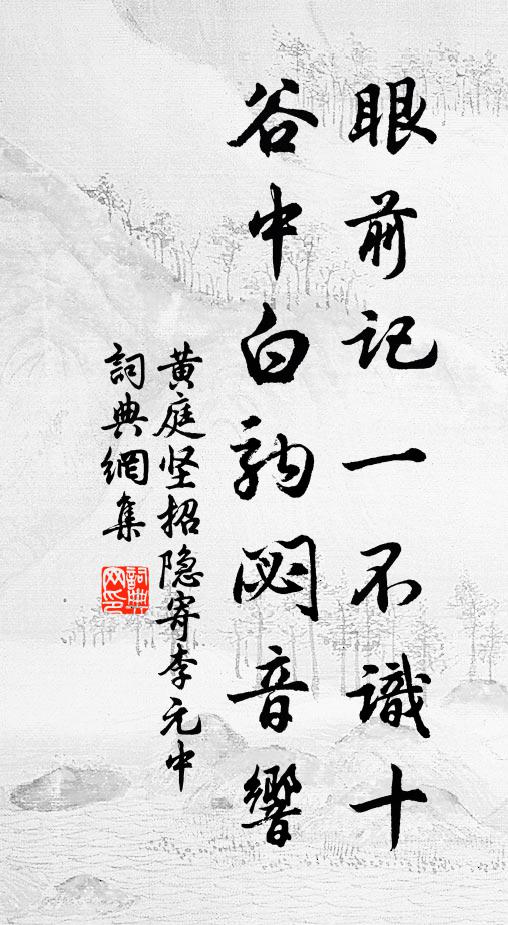 眼前記一不識十
谷中白駒閟音響
黄庭坚招隐寄李元中
詞典網集
詞典网印